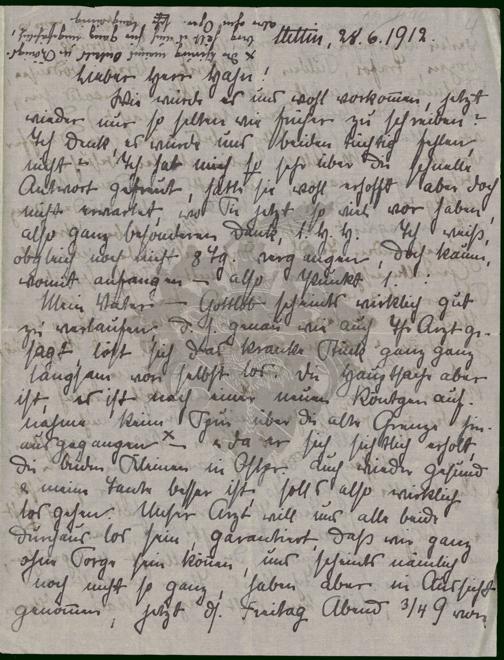 Stettin, 28.6.1912.
Lieber Herr Hahn!
Wie würde es uns wohl vorkommen, jetzt
wieder nur so selten wie früher zu schreiben?
Ich denk, es würde uns beiden tüchtig fehlen,
nicht? Ich hab mich so sehr über die schnelle
Antwort gefreut, hatte sie wohl erhofft aber doch
nicht erwartet, wo Sie jetzt so viel vor haben,
also ganz besonderen Dank, l. H. H. Ich weiß,
obgleich noch nicht 8 Tg. vergangen doch kaum,
womit anfangen – also Punkt 1.:
Mein Vater – Gottlob scheints wirklich gut
zu verlaufen d. h. genau wie auch Ihr Arzt ge-
sagt löst sich das kranke Stück ganz ganz
langsam von selbst los. Die Hauptsache aber
ist, es ist nach einer neuen Röntgenauf-
nahme keine Spur über die alte Grenze hin-
ausgegangen x – u da er sich sichtlich erholt,
die beiden Kleinen in Ostpr. auch wieder gesund
u meine Tante besser ist, solls also wirklich
los gehen. Unser Arzt will uns alle beide
durchaus los sein, garantiert, daß wir ganz
ohne Sorge sein können, und scheints nämlich
noch nicht so ganz, haben aber in Aussicht
genommen, jetzt d. Freitag Abend 3/4 9 von